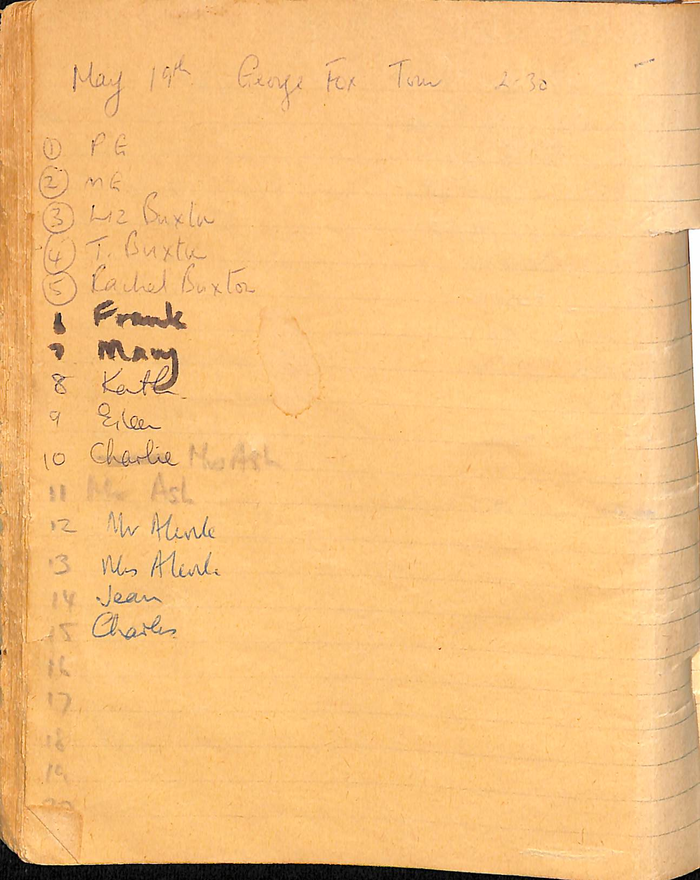 May 19th George Fox Tour 2.30
① P G
② M G
③ Liz Buxton
④ T. Buxton
⑤ Rachel Buxton
6 Frank
7 Mary
8 Keith
9 Eileen
10 Charlie Mrs Ash
11 Mr Ash
12 Mr
13 Mrs
14 Jean
15 Charles
16
17
18
19
20